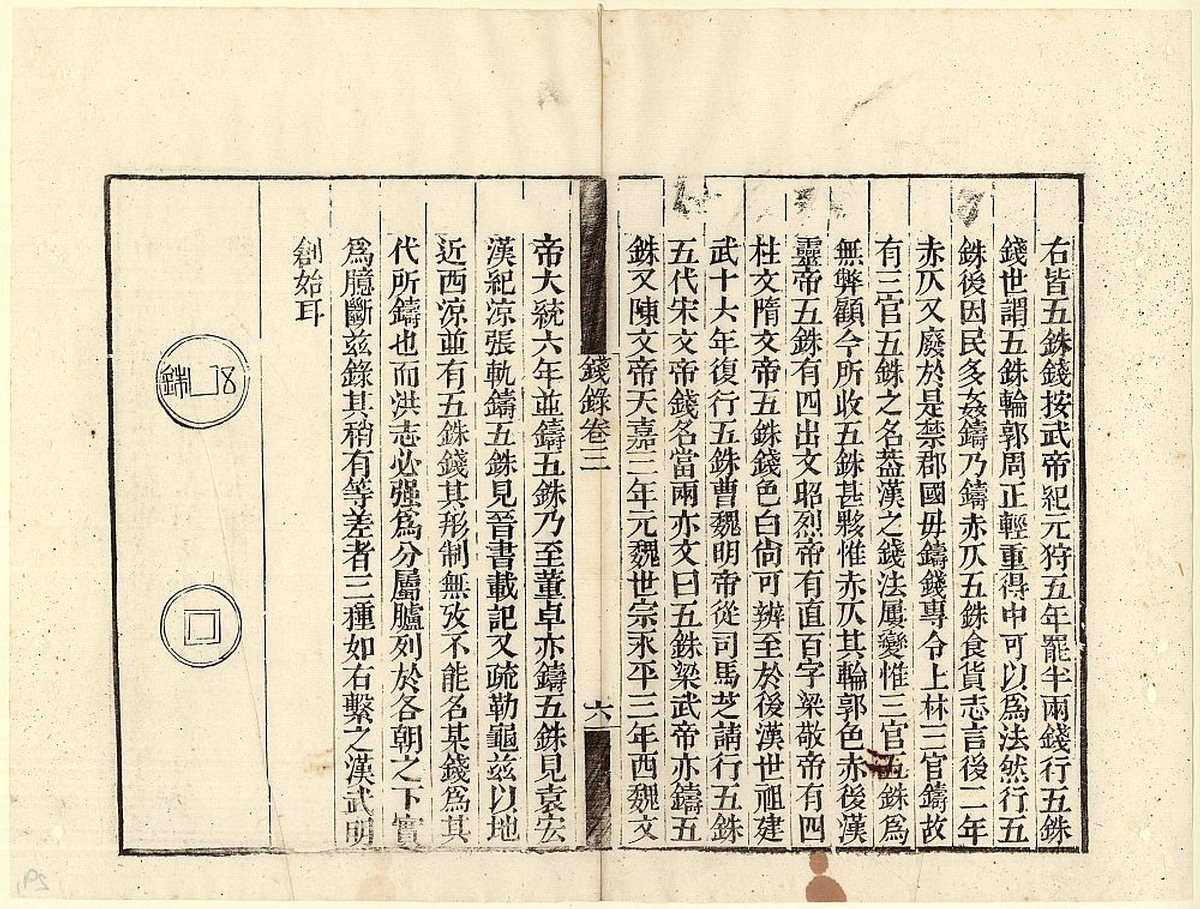 右皆五銖錢按武帝紀元狩五年罷半兩錢行五銖
錢世謂五銖輪郭周正輕重得中可以為法然行五
銖後因民多姦鑄乃鑄赤仄五銖食貨志言後二年
赤仄又廢於是禁郡國毋鑄錢專令上林三官鑄故
有三官五銖之名葢漢之錢法屢變惟三官五銖為
無弊顧今所收五銖甚夥惟赤仄其輪郭色赤後漢
靈帝五銖有四出文昭烈帝有直百字梁敬帝有四
柱文隋文帝五銖錢色白尙可辨至於後漢世祖建
武十六年復行五銖曹魏明帝從司馬芝請行五銖
五代宋文帝錢名當兩亦文曰五銖梁武帝亦鑄五
銖又陳文帝天嘉三年元魏世宗永平三年西魏文
錢錄卷三
六
帝大統六年並鑄五銖乃至董卓亦鑄五銖見袁宏
漢紀涼張軌鑄五銖見晉書載記又疏勒龜兹以地
近西涼並有五銖錢其形制無攷不能名某錢為某
代所鑄也而洪志必强為分屬臚列於各朝之下實
為臆斷兹錄其稍有等差者三種如右繫之漢武明
創始耳